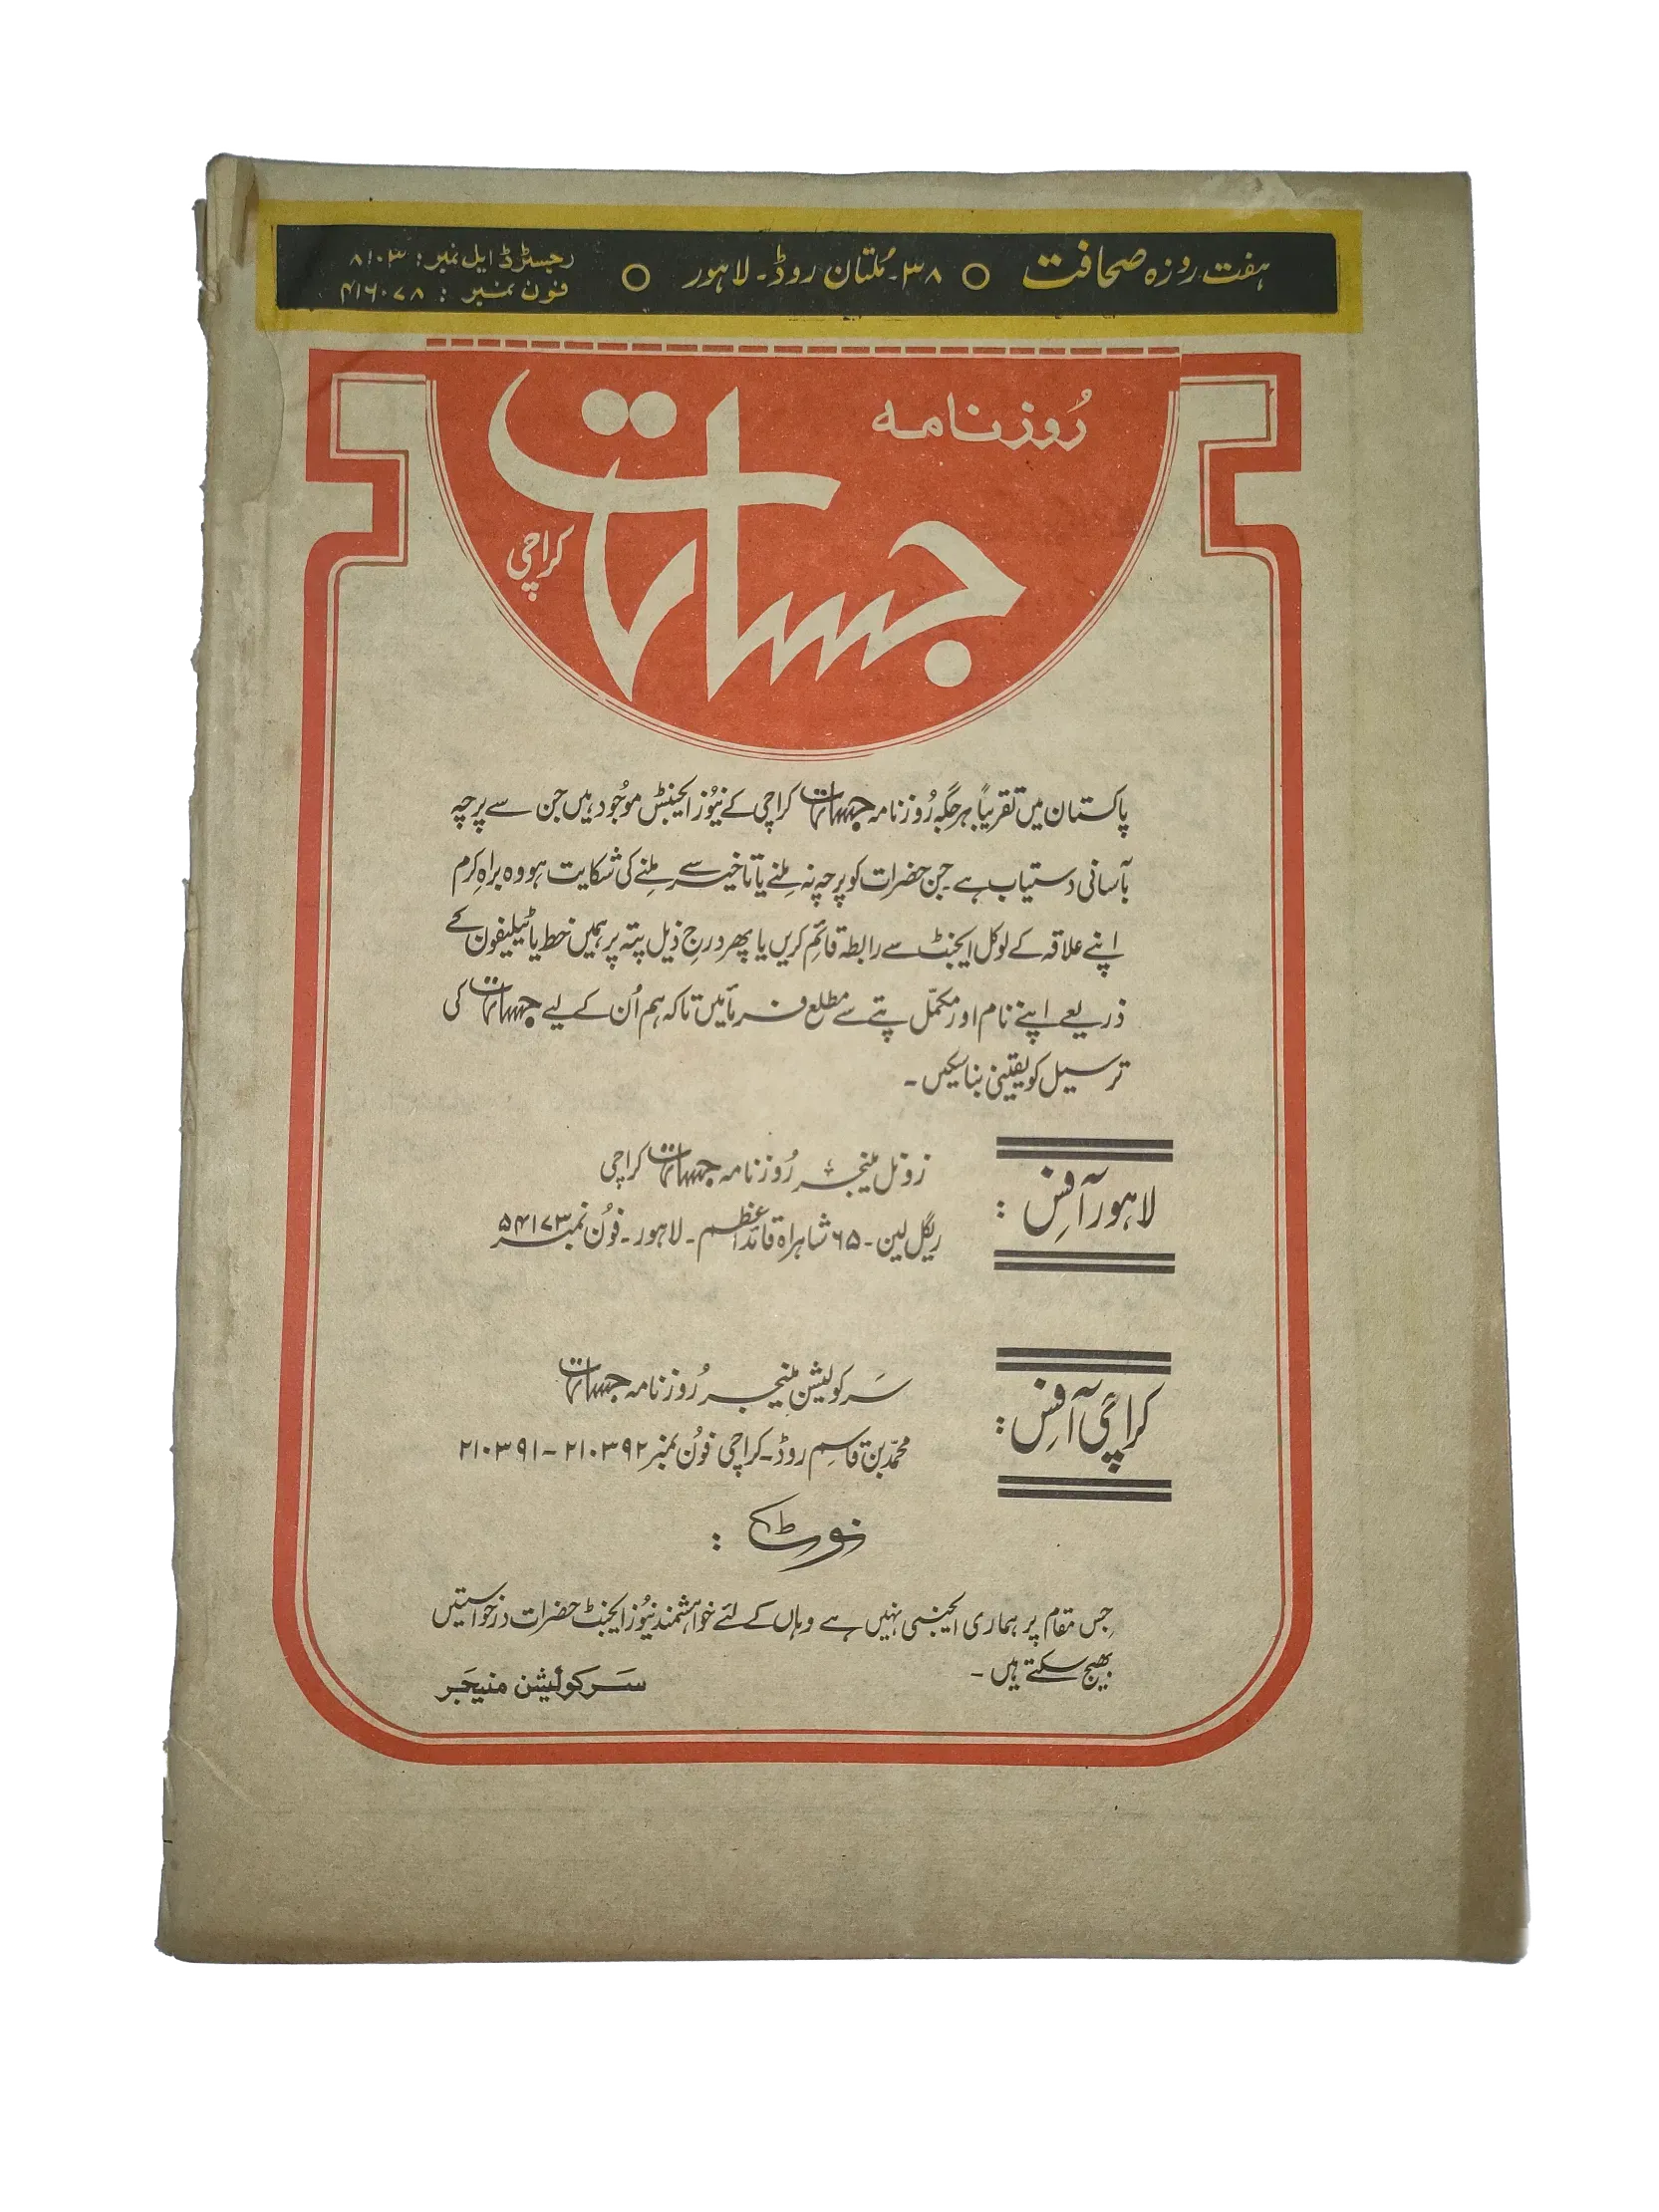 ہفت روزہ صحافت ○ ۳۸۔ مُلتان روڈ۔ لاہور ○ رجسٹرڈ ایل نمبر: ۸۱۰۳
فون نمبر: ۴۱۶۰۷۸
رُوزنامہ
جسارت
کراچی
پاکستان میں تقریباً ہر جگہ رُوزنامہ جسارت کراچی کے نیُوز ایجنٹس موجُود ہیں جن سے پرچہ
بآسانی دستیاب ہے۔ جن حضرات کو پرچہ نہ مِلنے یا تاخیر سے مِلنے کی شکایت ہو وہ براہِ کرم
اپنے علاقہ کے لوکل ایجنٹ سے رابطہ قائم کریں یا پھر درج ذیل پتہ پر ہمیں خط یا ٹیلیفون کے
ذریعے اپنے نام اور مکمّل پتے سے مطلع فرمائیں تاکہ ہم اُن کے لیے جسارت کی
ترسیل کو یقینی بنا سکیں۔
لاہور آفِس :
زونل مینجر رُوزنامہ جسارت کراچی
ریگل لین۔ ۶۵ شاہراہ قائداعظم۔ لاہور۔ فوُن نمبر ۵۴۱۷۳
کراچی آفِس :
سَرکولیشن مینجر رُوزنامہ جسارت
محمّد بن قاسِم روڈ۔ کراچی فوُن نمبر ۲۱۰۳۹۲ - ۲۱۰۳۹۱
نوٹ :
جِس مقام پر ہماری ایجنسی نہیں ہے وہاں کے لئے خواہشمند نیُوز ایجنٹ حضرات درخواستیں
بھیج سکتے ہیں۔
سَرکولیشن منیجَر